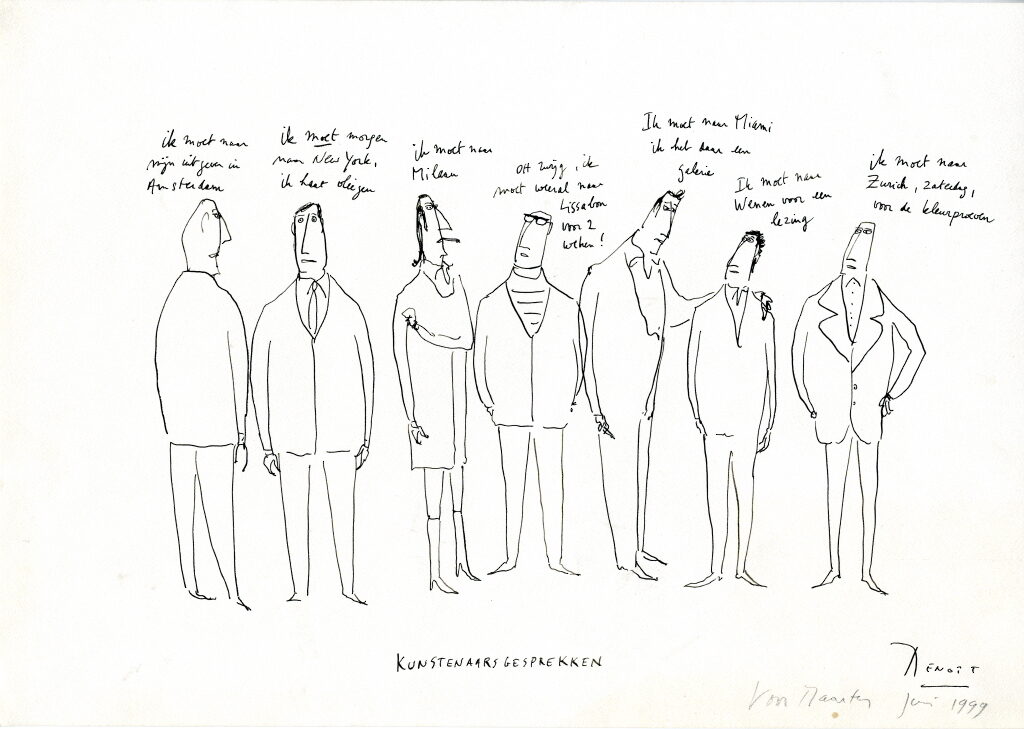 ik moet naar
mijn uitgever in
Amsterdam
ik moet morgen
naar New York,
ik haat vliegen
ik moet naar
Milaan
oh zwijg, ik
moet weeral naar
Lissabon
voor 2
weken!
Ik moet naar Miami
ik heb daar een
galerie
Ik moet naar
Wenen voor een
lezing
ik moet naar
Zurich, zaterdag,
voor de kleurproeven
KUNSTENAARSGESPREKKEN
BENOÎT
Voor Maarten juni 1999